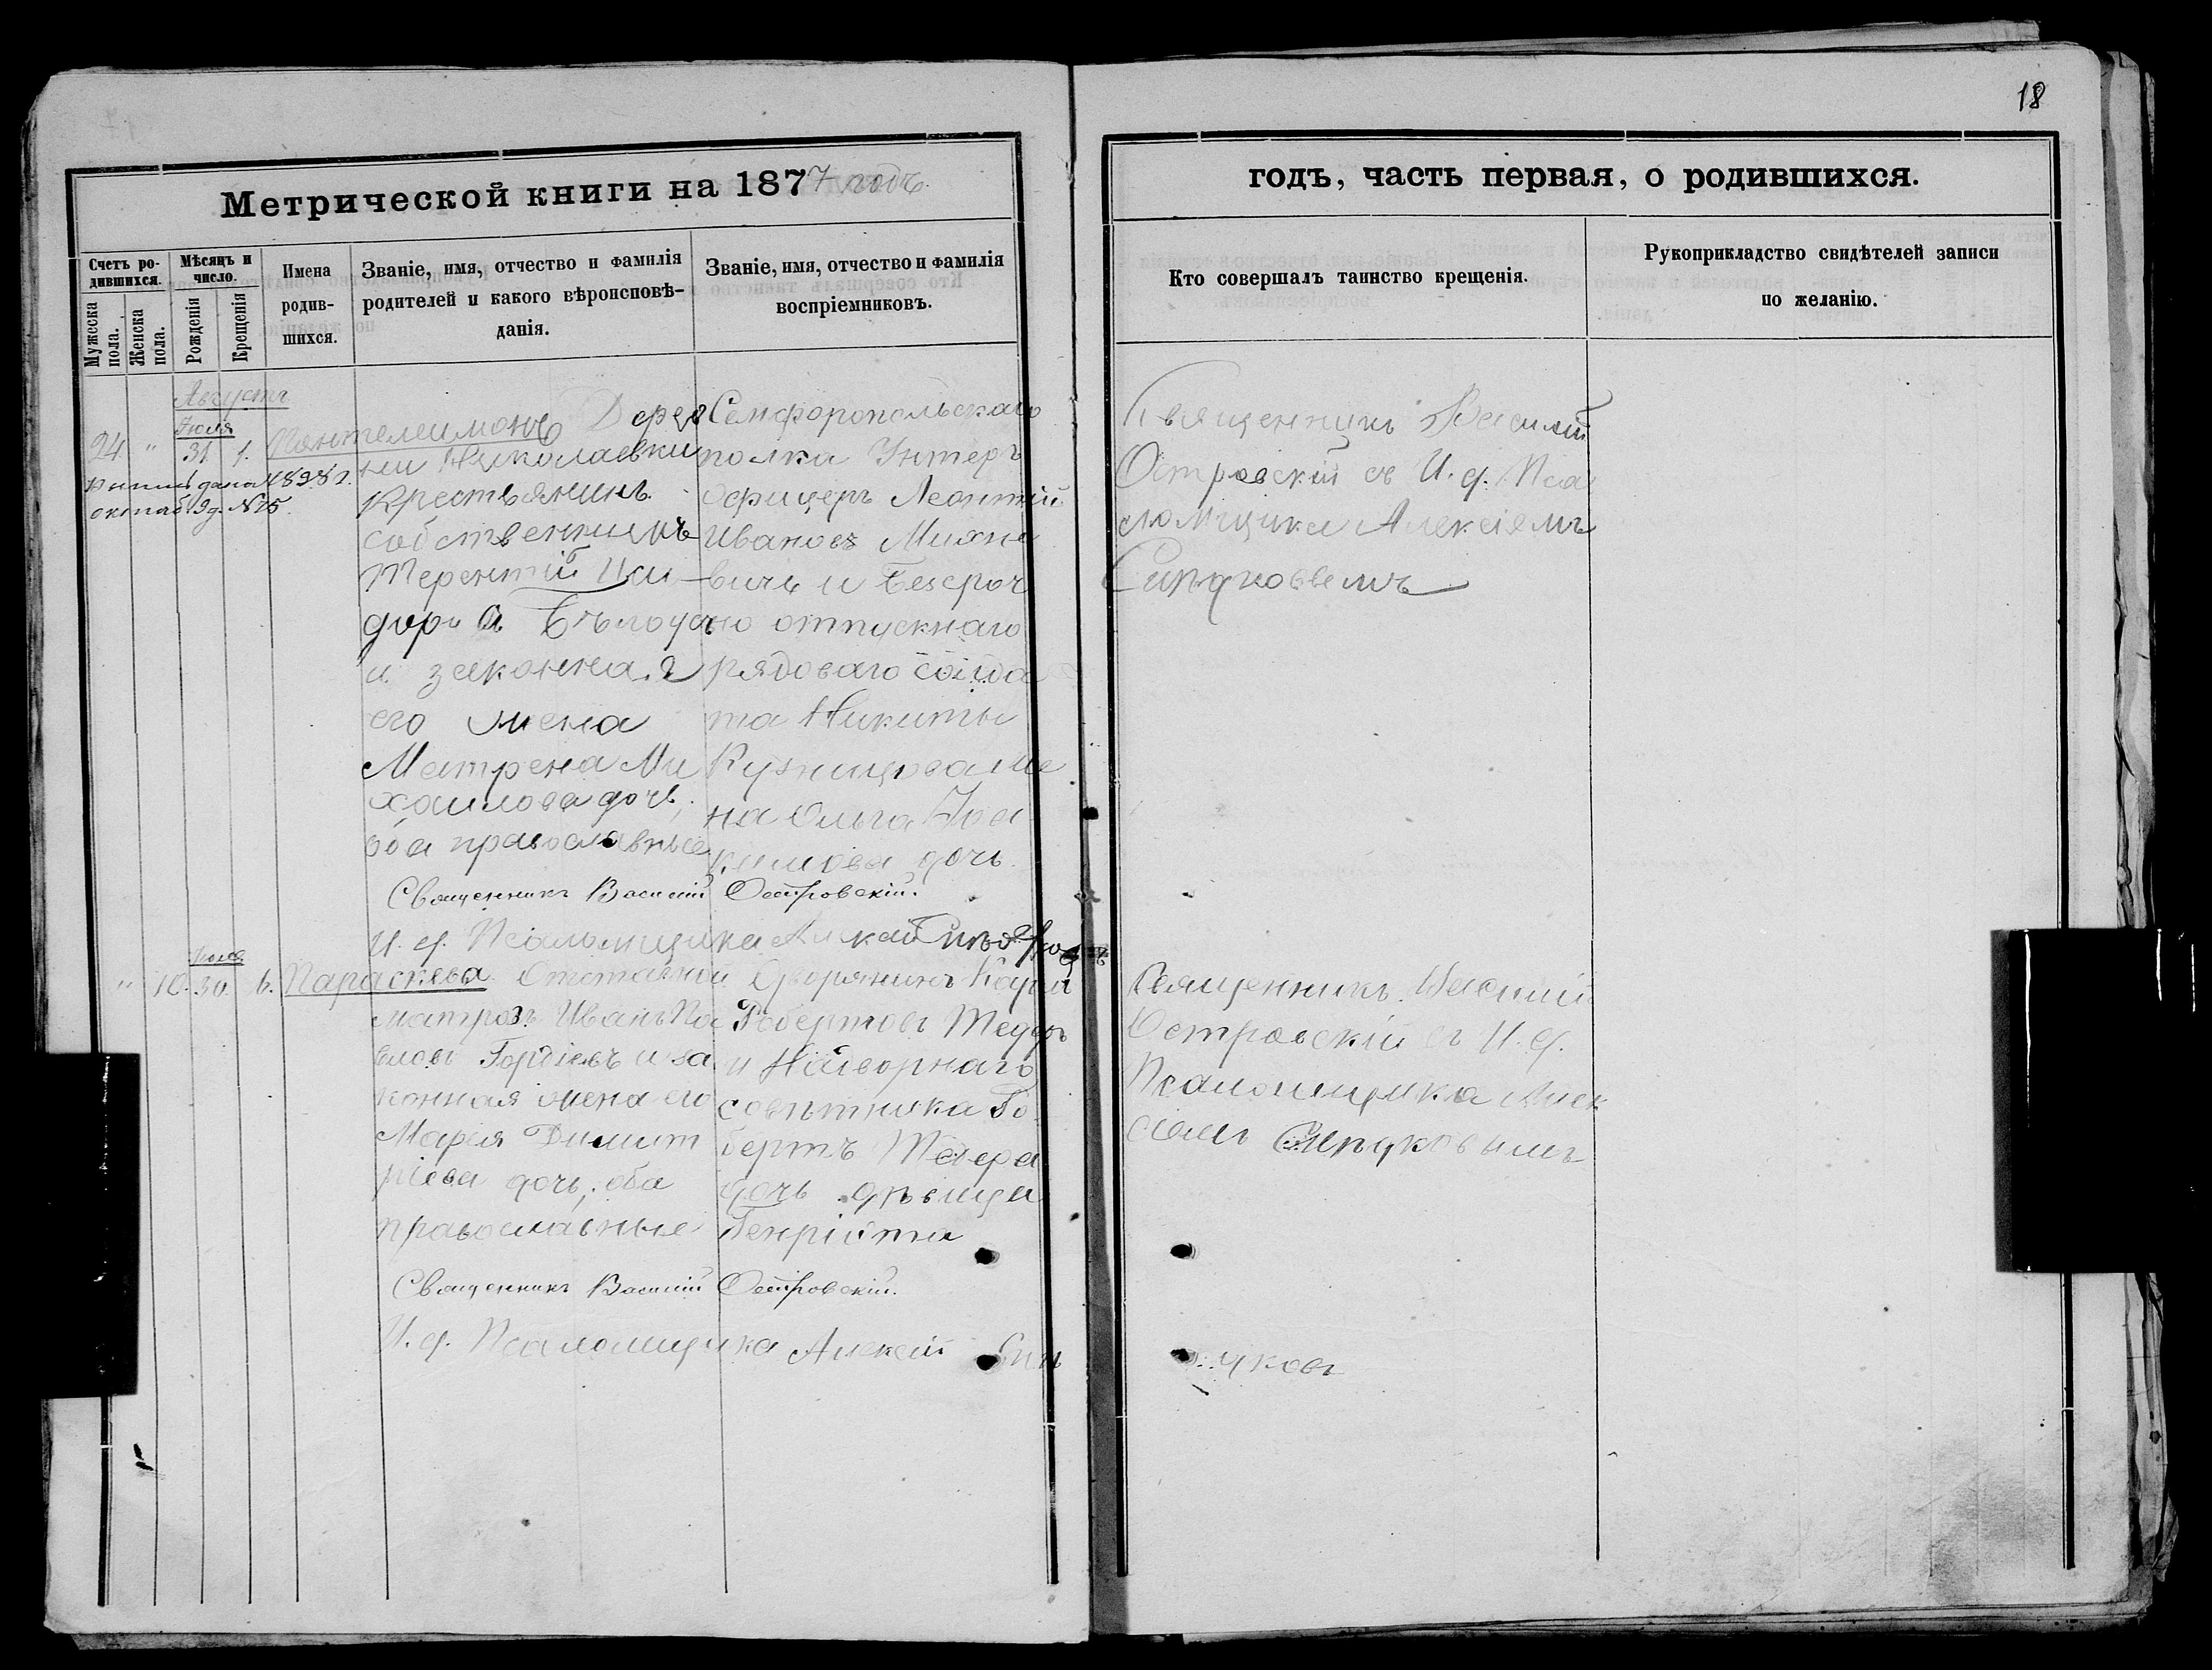 18
Метрической книги на 1877 годъ.
годъ, часть первая, о родившихся.
Счетъ ро-
дившихся.
Мужеска
пола.
Женска
пола.
Мѣсяцъ и
число.
Рожденія
Крещенія
Имена
родив-
шихся.
Званіе, имя, отчество и фамилія
родителей и какого вѣроисповѣ-
данія.
Званіе, имя, отчество и фамилія
воспріемниковъ.
Кто совершалъ таинство крещенія.
Рукоприкладство свидѣтелей записи
по желанію.
Августъ
Іюля
24 " 31 1.
Пантелеимонъ
дана 1898 г.
октяб. 9 д. № 25.
Дерев
ни Николаевки
Крестьянинъ
собственникъ
Терентій Иси
дор Бѣлоус
и законная
его жена
Матрена Ми
хаилова дочь,
оба православные
Семферопольскаго
полка Унтеръ
офицеръ Леонтій
Ивановъ Михне
вичъ и безсроч
но отпускнаго
рядоваго солда
та Никиты
Кузницова же
на Ольга Іоа
кимова дочь.
Священникъ Василій
Островскій съ И. д. Пса
ломщика Алексіемъ
Священникъ Василій Островскій.
И. д. Псаломщика Алексій
Іюля
" 10. 30. 6.
Параскева
Отставной
матрозъ Иванъ Па
вловъ Гордіевъ и за
конная жена его
Марія Димит
ріева дочь, оба
православные
Дворянинъ Карлъ
Робертовъ
и Надворнаго
совѣтника Ро
бертъ
дочь дѣвица
Генріэта
Священникъ Василій
Островскій съ И. д.
Псаломщика Алек
сіемъ
Священникъ Василій Островскій.
И. д. Псаломщика Алексій